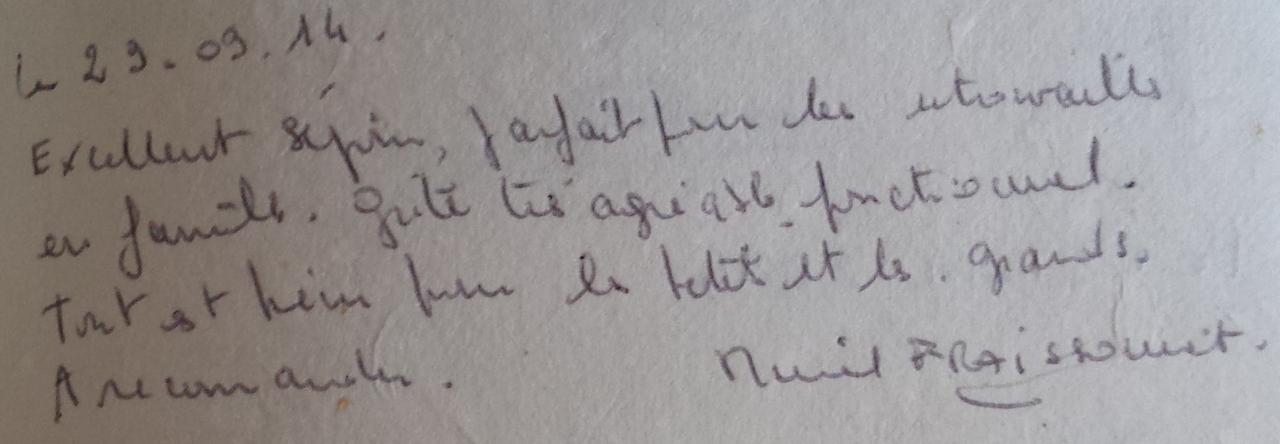 le 29.09.14.
Excellent séjour, parfait pour les retrouvailles
en famille. Gîte très agréable fonctionnel.
Tout est prévu pour les petits et les grands.
A recommander.
Muriel FRAISSOUNET.